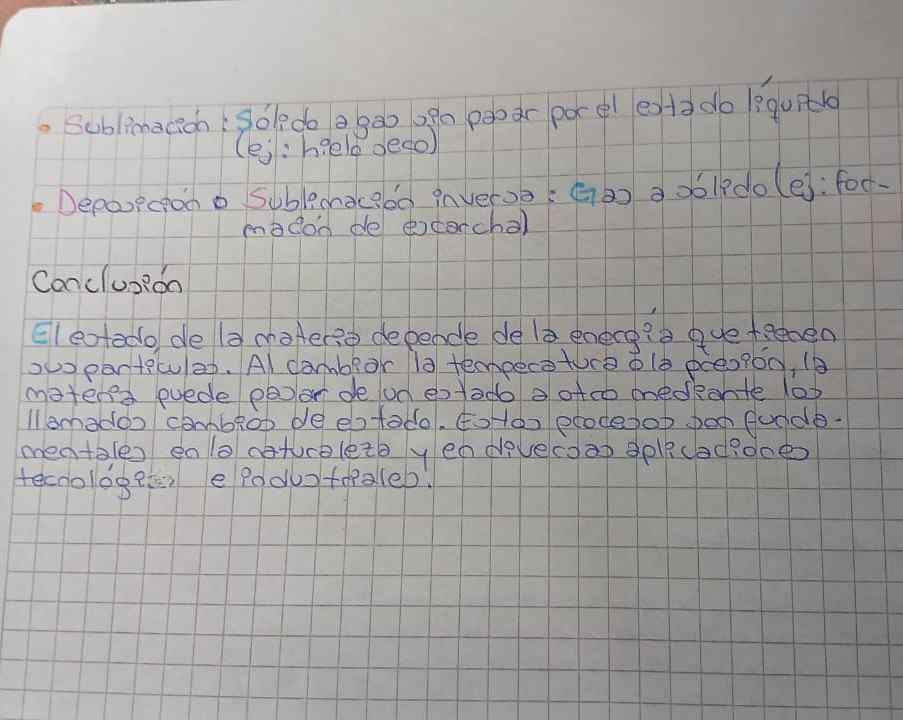 • Sublimación: Sólido a gas sin pasar por el estado líquido
(ej: hielo seco)
• Deposición o Sublimación inversa: Gas a sólido (ej: for-
mación de escarcha)
Conclusión
El estado de la materia depende de la energía que tienen
sus partículas. Al cambiar la temperatura o la presión, la
materia puede pasar de un estado a otro mediante los
llamados cambios de estado. Estos procesos son funda-
mentales en la naturaleza y en diversas aplicaciones
tecnológicas e industriales.